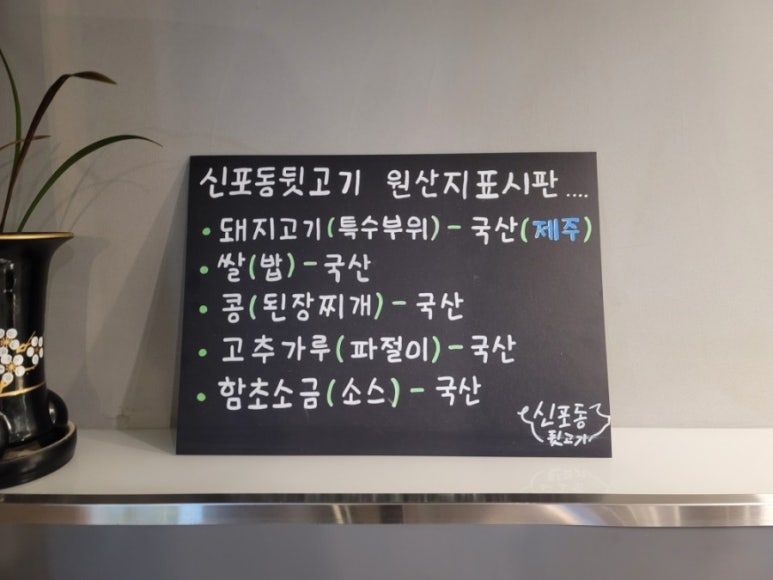 신포동뒷고기 원산지표시판....
• 돼지고기(특수부위) - 국산(제주)
• 쌀(밥) - 국산
• 콩(된장찌개) - 국산
• 고추가루(파절이) - 국산
• 함초소금(소스) - 국산
신포동
뒷고기